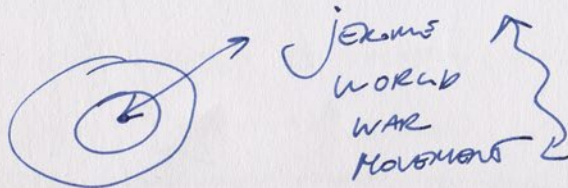 JEROME
WORLD
WAR
MOVEMENT